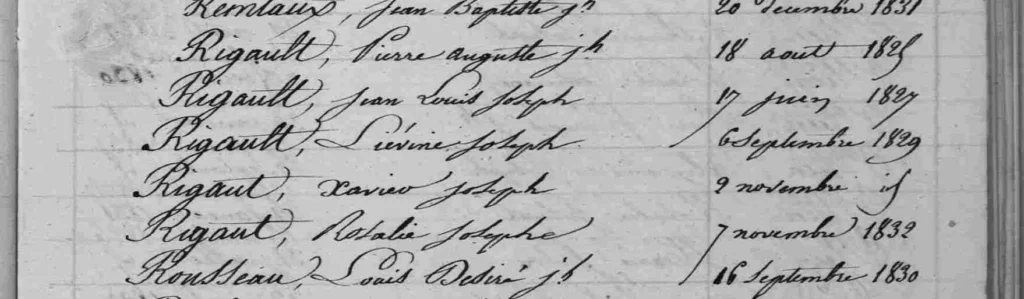 Remtaux, Jean Baptiste jh 20 decembre 1831
Rigault, Pierre auguste jh 18 aout 1825
Rigault, Jean Louis Joseph 17 juin 1827
Rigault, Liévine Joseph 6 Septembre 1829
Rigaut, Xavier Joseph 2 novembre id
Rigaut, Rosalie Josephe 7 novembre 1832
Rousseau, Louis Desiré jh 16 Septembre 1830